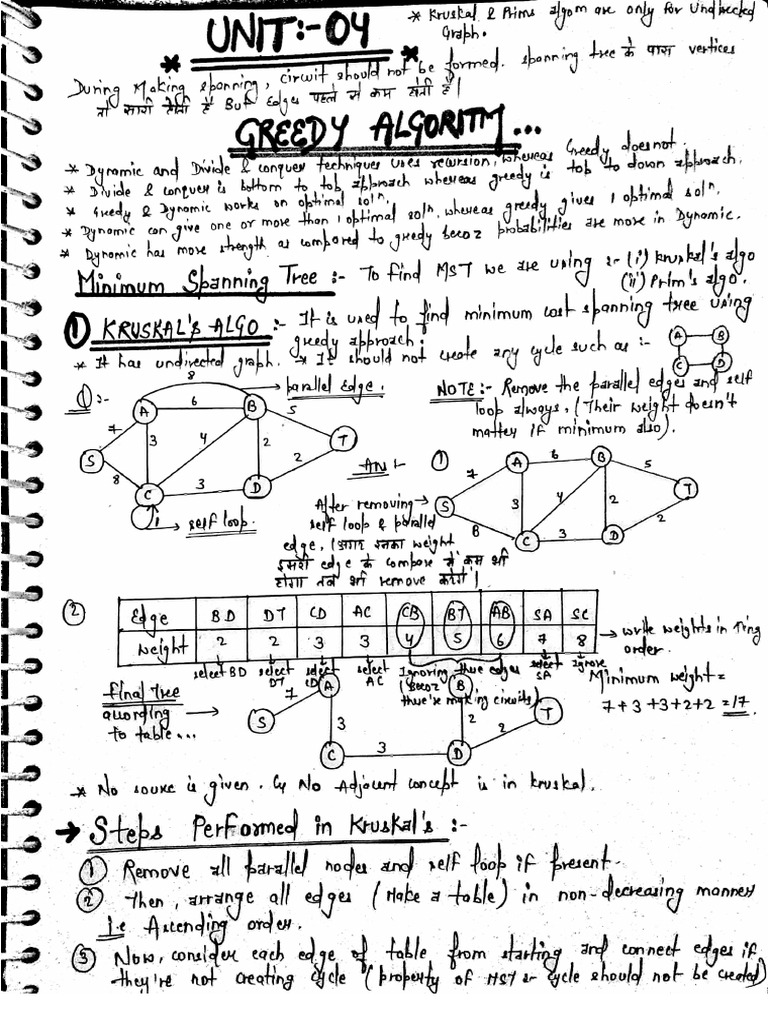 * Kruskal & Prims algom are only for Undirected
Graph.
UNIT:-04
During Making spanning, circuit should not be formed. spanning tree के पास vertices
तो सारी होती हैं But Edges पहले से कम होती है।
GREEDY ALGORITM...
* Dynamic and Divide & conquer techniques uses recursion, whereas Greedy doesnot.
* Divide & conquer is bottom to tob approach whereas greedy is tob to down approach.
* Greedy & Dynamic works on optimal solⁿ.
* Dynamic can give one or more than 1 optimal solⁿ, whereas greedy gives 1 optimal solⁿ.
* Dynamic has more strength as compared to greedy becoz probabilities are more in Dynamic.
Minimum Spanning Tree :- To find MST we are using :- (i) Kruskal's algo
(ii) Prim's algo.
① KRUSKAL's ALGO :- It is used to find minimum cost spanning tree using
greedy approach.
* It has undirected graph. * It should not create any cycle such as :-
A B
C D
①:-
8
parallel Edge.
NOTE:- Remove the parallel edges and self
loop always, (Their weight doesn't
matter if minimum also).
A 6 B 5
7 3 4 2 T
S 2
8 C 3 D
self loop.
Ans:- ①
A 6 B 5
7 3 4 2 T
S 2
8 C 3 D
After removing
self loop & parallel
edge, (अगर इनका weight
इसकी edge के compare से कम भी
होगा तब भी remove करेंगे।
②
Edge BD DT CD AC CB BT AB SA SC
Weight 2 2 3 3 4 5 6 7 8
→ write weights in ↑ing
order.
select BD select DT select CD select AC Ignoring these edges
(Becoz
these're making circuits).
select SA Ignore
Final Tree
according
to table...
A B
7 3 2 T
S 2
C 3 D
Minimum weight =
7+3+3+2+2 = 17
* No source is given. & No Adjacent concept is in kruskal.
→ Steps Performed in Kruskal's :-
① Remove all parallel nodes and self loop if present.
② Then, arrange all edges (Make a table) in non-decreasing manner
i.e Ascending order.
③ Now, consider each edge of table from starting and connect edges if
they're not creating cycle (property of MST :- cycle should not be created)